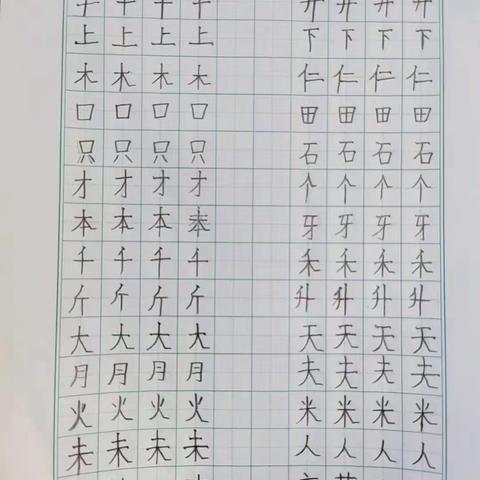 上 上 上 上 下 下 下 下
木 木 木 木 仁 仁 仁 仁
口 口 口 口 田 田 田 田
只 只 只 只 石 石 石 石
才 才 才 才 个 个 个 个
本 本 本 牙 牙 牙 牙
千 千 千 千 禾 禾 禾 禾
斤 斤 斤 斤 升 升 升 升
大 大 大 大 天 天 天 天
月 月 月 月 夫 夫 夫 夫
火 火 火 火 米 米 米 米
未 未 未 未 人 人 人 人